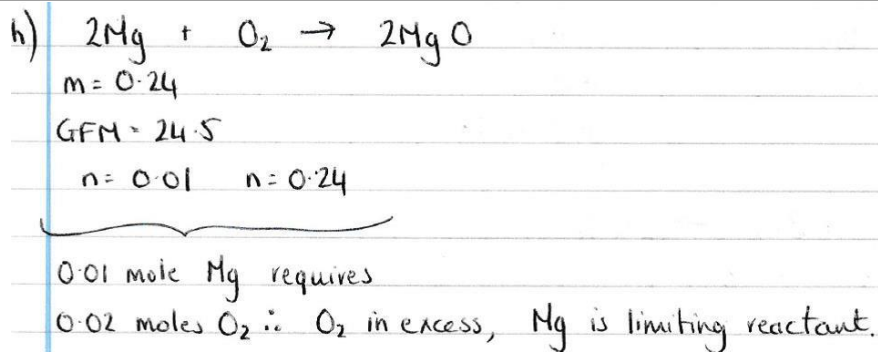 h) 2Mg + O₂ → 2MgO
m = 0.24
GFM = 24.5
n = 0.01 n = 0.24
0.01 mole Mg requires
0.02 moles O₂ ∴ O₂ in excess, Mg is limiting reactant.